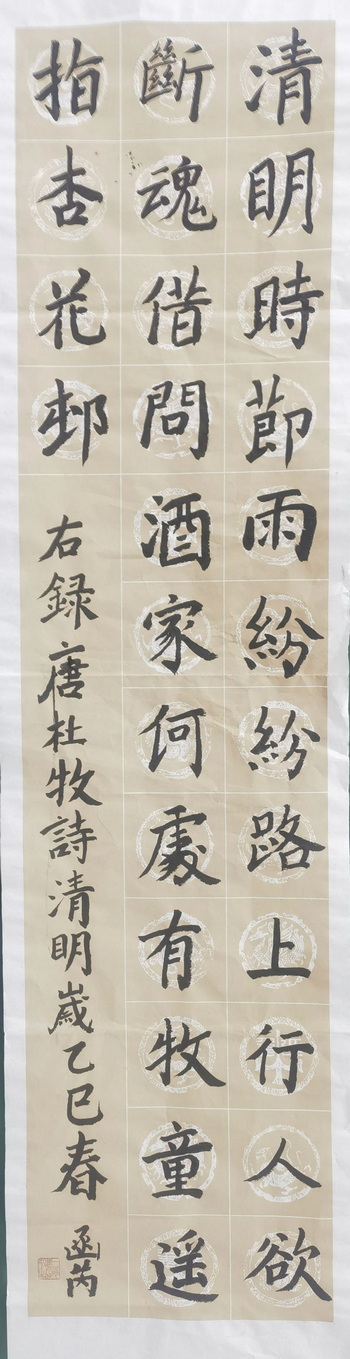 清明時節雨紛紛路上行人欲
斷魂借問酒家何處有牧童遥
指杏花邨
右録唐杜牧詩清明歲乙巳春
函芮